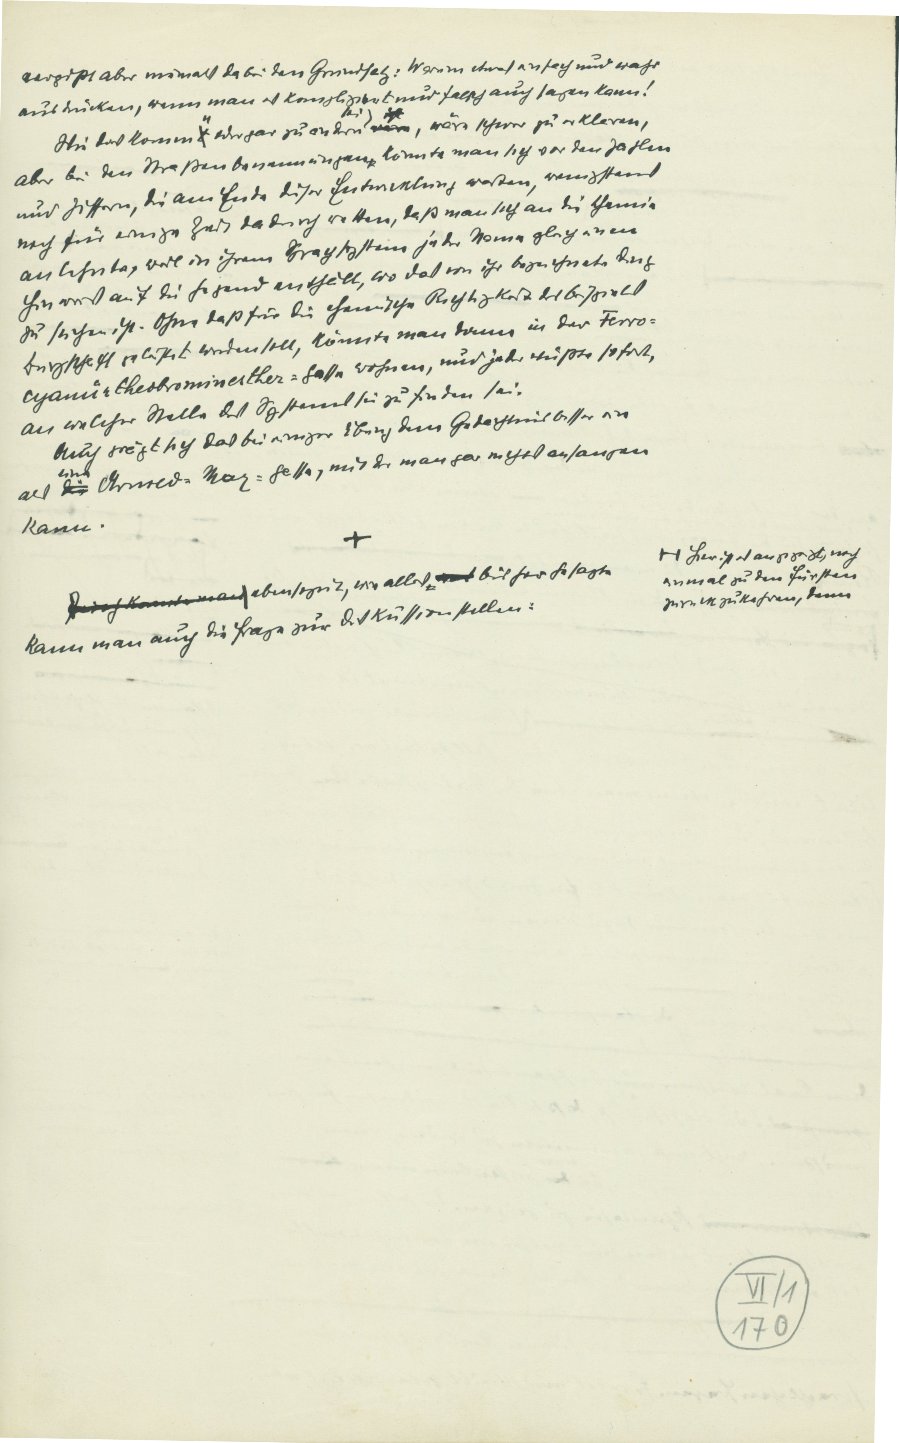 vergißt aber niemals dabei den Grundsatz: Warum etwas einfach und wahr
ausdrücken, wenn man es kompliziert und falsch auch sagen kann!
Wie das kommt oder gar zu ändern sei, wäre schwer zu erklären,
aber bei den Straßenbenennungen könnte man sich vor den Zahlen
und Ziffern, die am Ende dieser Entwicklung warten, wenigstens
noch für einige Zeit dadurch retten, daß man sich an die Chemie
anlehnte, weil in ihrem Sprachsystem jeder Name gleich einen
Hinweis auf die Gegend enthält, wo das von ihr bezeichnete Ding
zu suchen ist. Ohne daß für die chemische Richtigkeit des Beispiels
Bürgschaft geleistet werden soll, könnte man dann in der Ferro=
cyanür=theobrominesther=Gasse wohnen, und jeder wüßte sofort,
an welcher Stelle des Systems sie zu finden sei.
Auch prägt sich das bei einiger Übung dem Gedächtnis besser ein
als eine Arnold= May=Gasse, mit der man gar nichts anfangen
kann.
+
ebensogut, wie alles bisher Gesagte
kann man auch die Frage zur Diskussion stellen:
Hier ist es angezeigt, noch
einmal zu den Fürsten
zurückzukehren, denn
VI/1
170